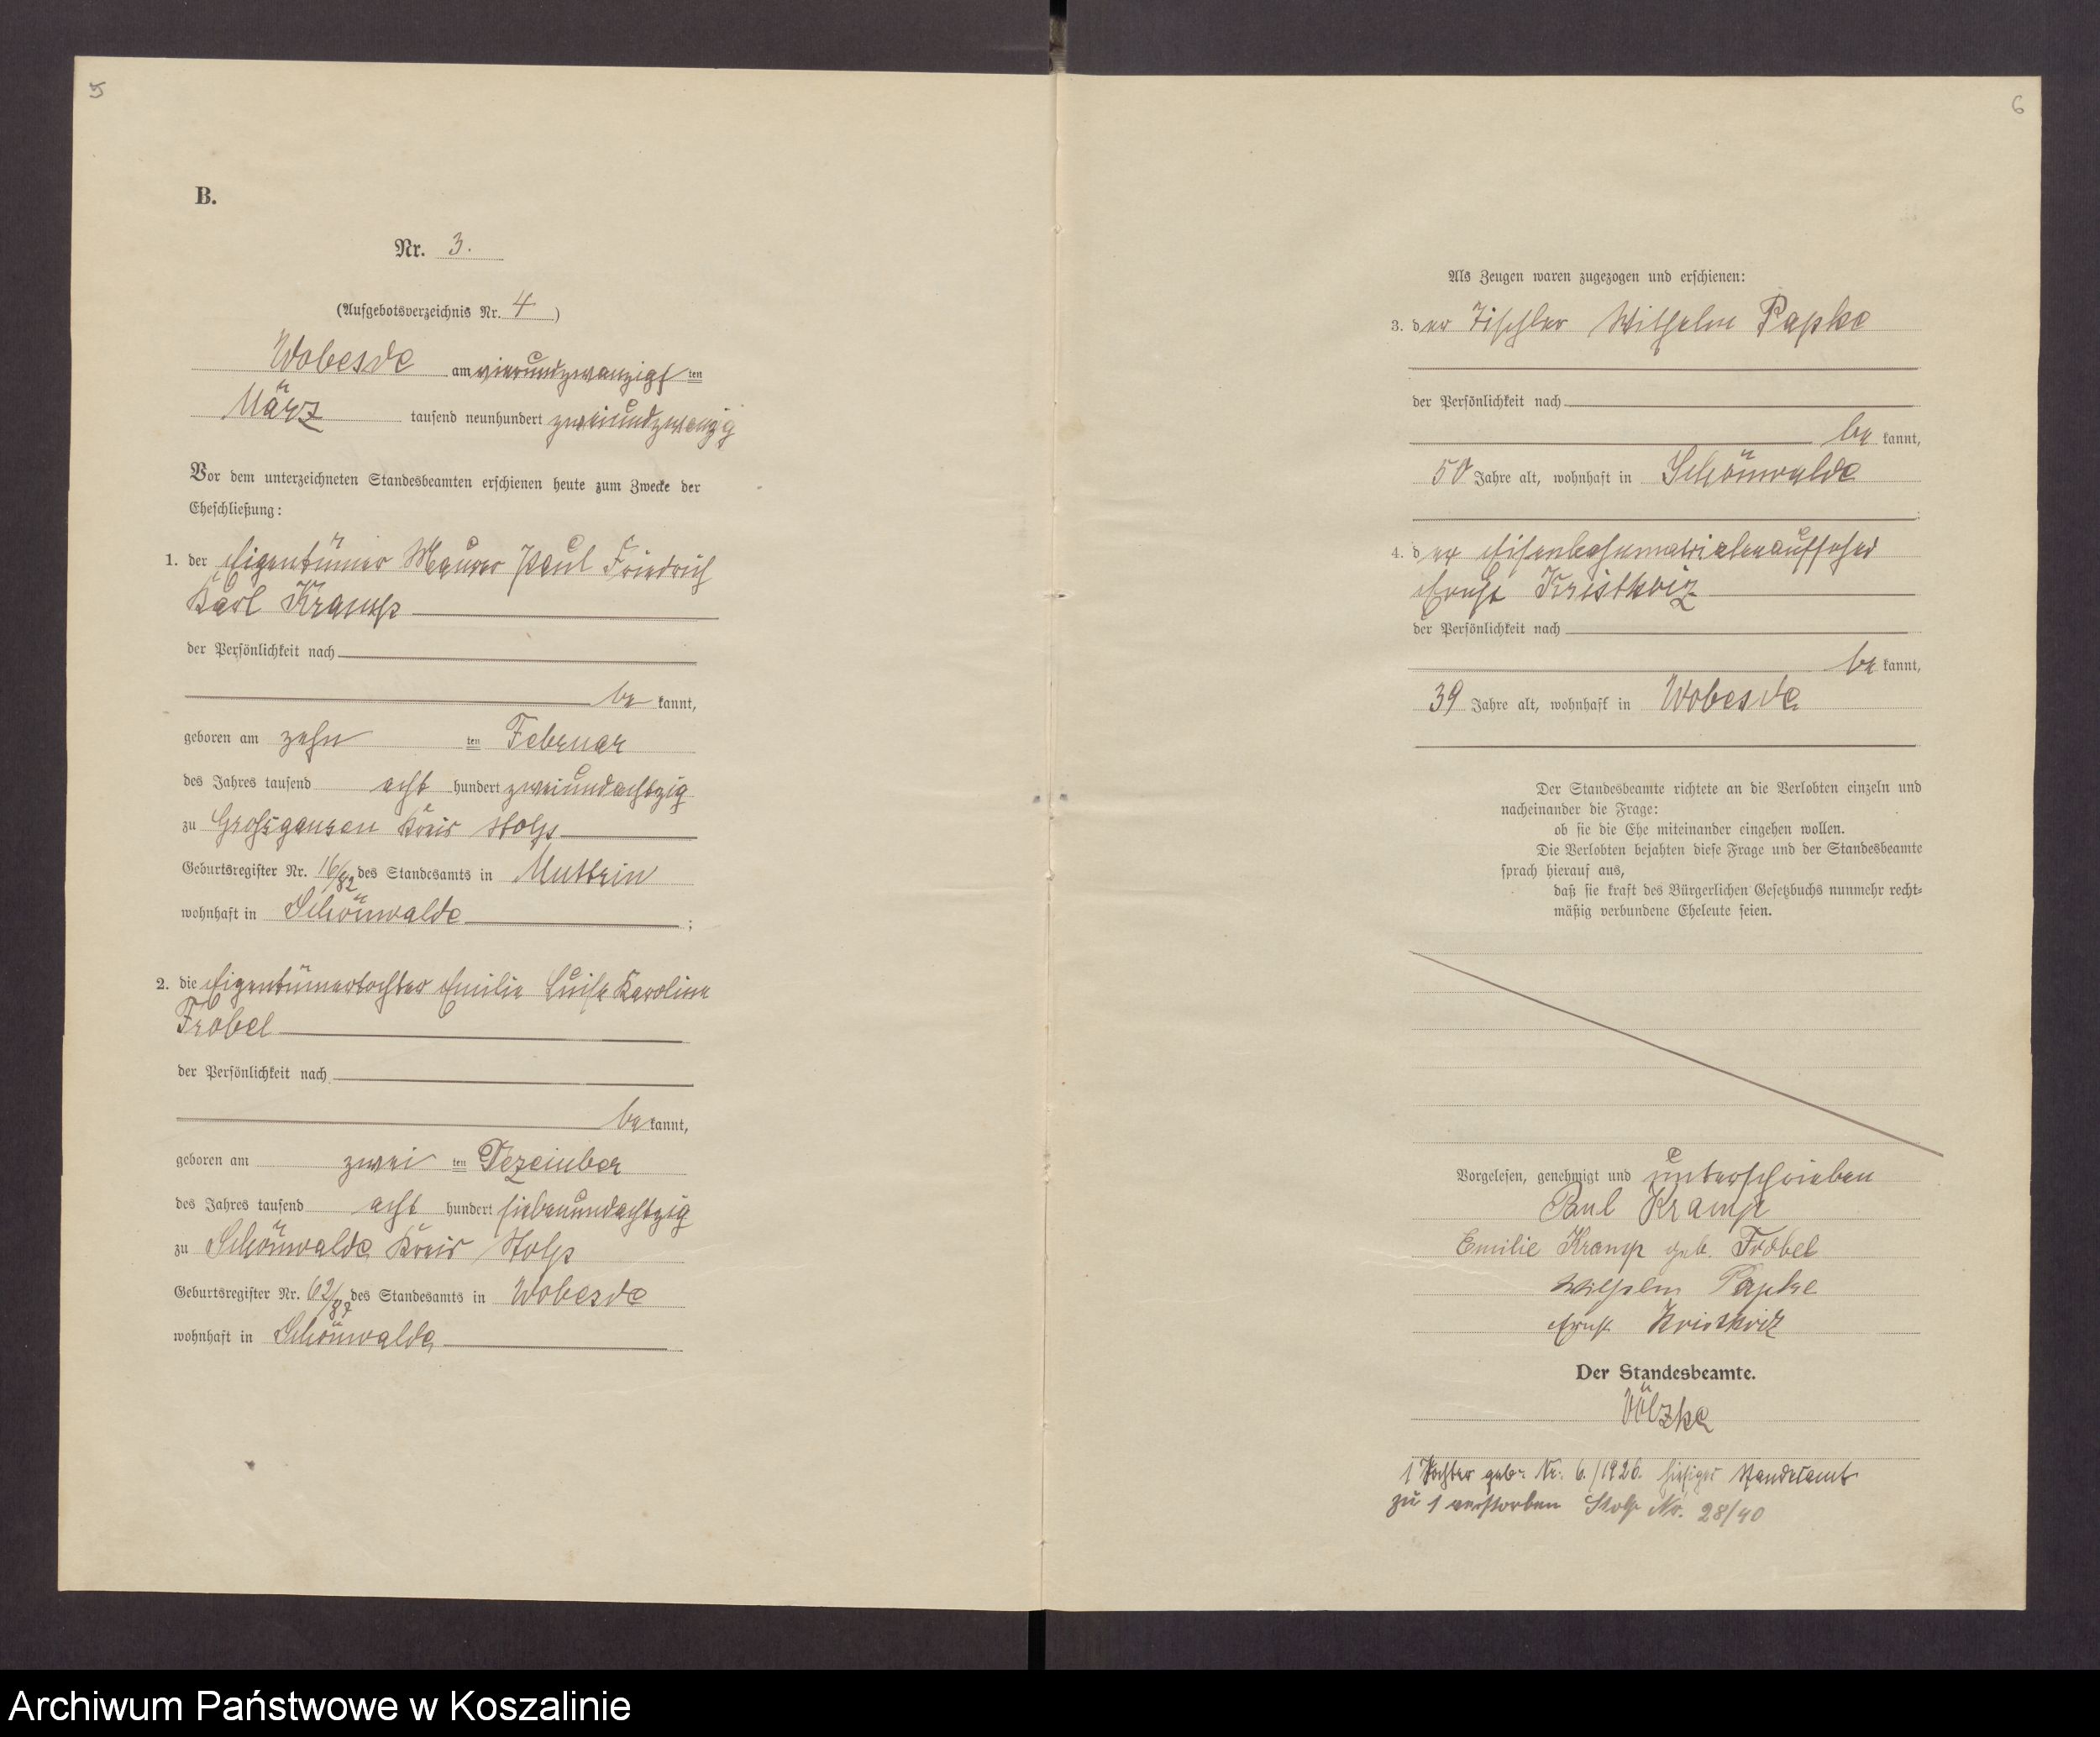 5
B.
Nr. 3.
(Aufgebotsverzeichnis Nr. 4)
Wobesde am vierundzwanzigsten
März tausend neunhundert zweiundzwanzig
Vor dem unterzeichneten Standesbeamten erschienen heute zum Zwecke der
Eheschließung:
1. der Eigentümer Maurer Paul Friedrich
Karl Kramp
der Persönlichkeit nach
be kannt,
geboren am zehn ten Februar
des Jahres tausend acht hundert zweiundachtzig
zu Großgansen Kreis Stolp
Geburtsregister Nr. 16/82 des Standesamts in Muttrin
wohnhaft in Schönwalde ;
2. die Eigentümertochter Emilie Luise Karoline
Fröbel
der Persönlichkeit nach
be kannt,
geboren am zwei ten Dezember
des Jahres tausend acht hundert siebenundachtzig
zu Schönwalde Kreis Stolp
Geburtsregister Nr. 62/87 des Standesamts in Wobesde
wohnhaft in Schönwalde
6
Als Zeugen waren zugezogen und erschienen:
3. der Tischler Wilhelm Papke
der Persönlichkeit nach
be kannt,
50 Jahre alt, wohnhaft in Schönwalde
;
4. der
Ernst Kristkoiz
der Persönlichkeit nach
be kannt,
39 Jahre alt, wohnhaft in Wobesde
Der Standesbeamte richtete an die Verlobten einzeln und
nacheinander die Frage:
ob sie die Ehe miteinander eingehen wollen.
Die Verlobten bejahten diese Frage und der Standesbeamte
sprach hierauf aus,
daß sie kraft des Bürgerlichen Gesetzbuchs nunmehr recht-
mäßig verbundene Eheleute seien.
Vorgelesen, genehmigt und unterschrieben
Paul Kramp
Emilie Kramp geb. Fröbel
Wilhelm Papke
Ernst Kristkoiz
Der Standesbeamte.
Völzke
1 Tochter geb. Nr. 6./1926. hiesiges Standesamt
zu 1 verstorben Stolp Nr. 28/40
Archiwum Państwowe w Koszalinie